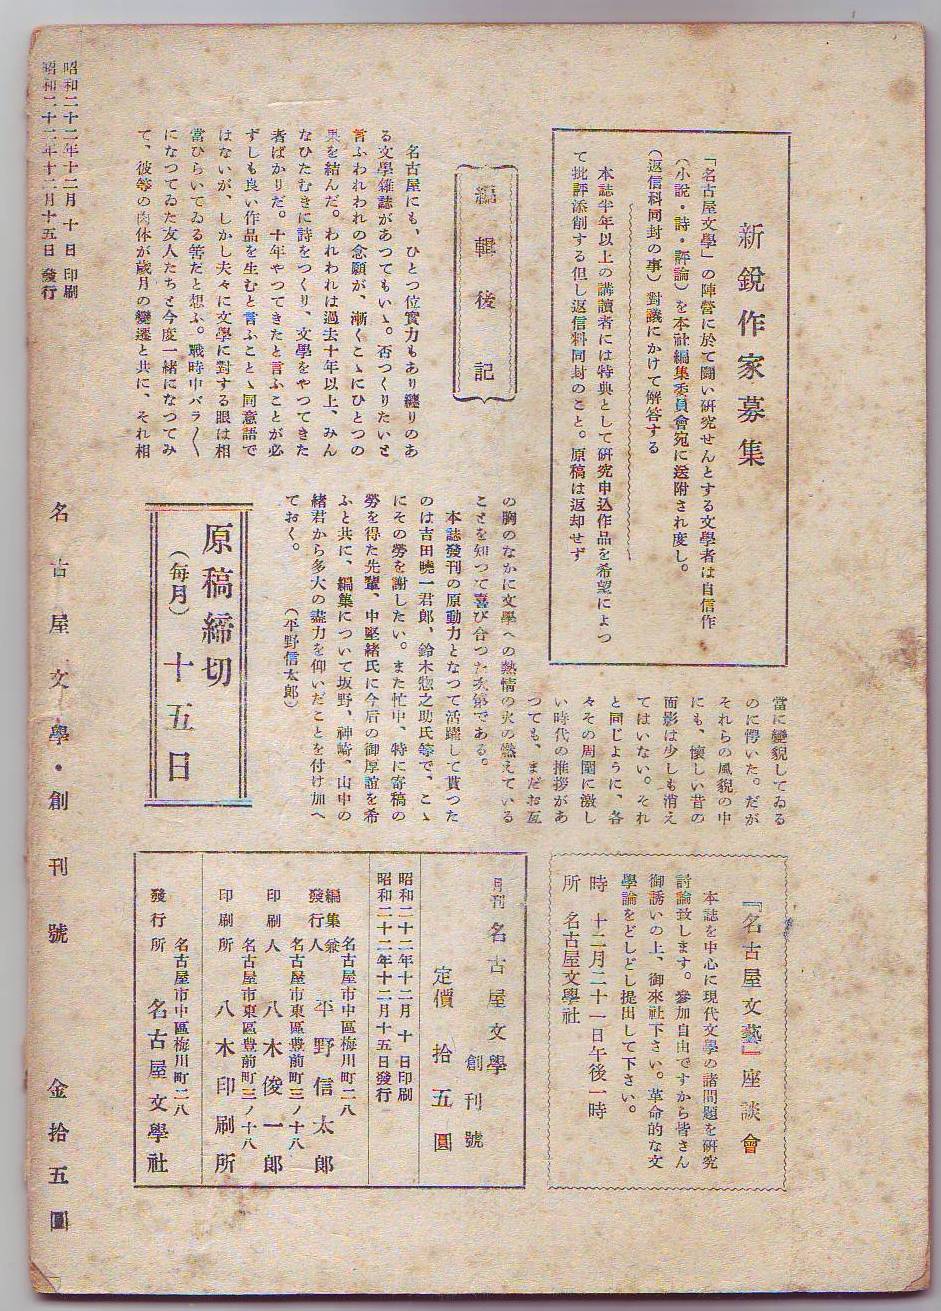 新銳作家募集
「名古屋文學」の陣營に於て闘い硏究せんとする文學者は自信作
（小說・詩・評論）を本社編集委員會宛に送附され度し。
（返信料同封の事）對議にかけて解答する
本誌半年以上の講讀者には特典として硏究申込作品を希望によつ
て批評添削する但し返信料同封のこと。原稿は返却せず
編輯後記
名古屋にも、ひとつ位實力もあり纏りのあ
る文學雜誌があつてもいゝ。否つくりたいと
言ふわれわれの念願が、漸くこゝにひとつの
果を結んだ。われわれは過去十年以上、みん
なひたむきに詩をつくり、文學をやつてきた
者ばかりだ。十年やつてきたと言ふことが必
ずしも良い作品を生むと言ふことゝ同意語で
はないが、しかし夫々に文學に對する眼は相
當ひらいてゐる筈だと想ふ。戰時中バラ〱
になつてゐた友人たちと今度一緒になつてみ
て、彼等の肉体が歲月の變遷と共に、それ相
當に變貌してゐる
のに愕いた。だが
それらの風貌の中
にも、懷しい昔の
面影は少しも消え
てはいない。それ
と同じように、各
々その周圍に激し
い時代の推拶があ
つても、まだお互
の胸のなかに文學への熱情の火の燃えている
ことを知つて喜び合つた次第である。
本誌發刊の原動力となつて活躍して貰つた
のは吉田曉一君郎、鈴木惣之助氏等で、こゝ
にその勞を謝したい。また忙中、特に寄稿の
勞を得た先輩、中堅緖氏に今后の御厚誼を希
ふと共に、編集について坂野、神崎、山中の
緖君から多大の盡力を仰いだことを付け加へ
ておく。　（平野信太郎）
原稿締切
（每月）十五日
『名古屋文藝』座談會
本誌を中心に現代文學の諸問題を硏究
討論致します。參加自由ですから皆さん
御誘いの上、御來社下さい。革命的な文
學論をどしどし提出して下さい。
時　十二月二十一日午後一時
所　名古屋文學社
月刊 名古屋文學
創刊號
定價 拾五圓
昭和二十二年十二月 十 日印刷
昭和二十二年十二月十五日發行
名古屋市中區梅川町二八
編集兼發行人 平野信太郎
名古屋市東區豊前町三ノ十八
印刷人 八木俊一郎
名古屋市東區豊前町三ノ十八
印刷所 八木印刷所
名古屋市中區梅川町二八
發行所 名古屋文學社
昭和二十二年十二月 十 日 印刷
昭和二十二年十二月十五日 發行
名古屋文學・創刊號　金拾五圓